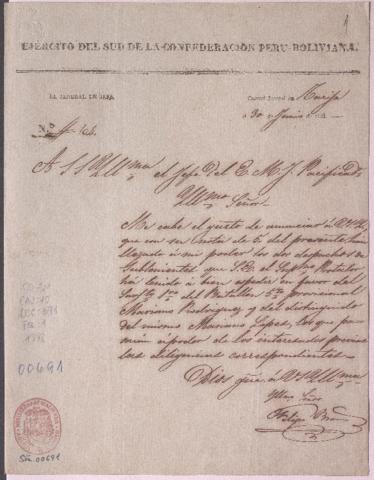 1
EJÉRCITO DEL SUD DE LA CONFEDERACIÓN PERU-BOLIVIANA.
EL JENERAL EN JEFE.
Cuartel Jeneral en
á 30 de Junio
N.º
A S S Y Ilma.
el Jefe del E. M. J. Pacificad.
Ilmo. Señor.
Me cabe el gusto de anunciar á V.S.I.
que con su nota de 5 del presente han
llegado á mi poder los dos despachos de
Subteniente, que S.E. el Protector
ha tenido á bien espedir en favor del
Sarjto. 1.º del Batallon 5.º provisional
Mariano Rodriguez y del distinguido
del mismo Mariano Lopez, los que
á poder de los interesados previas
las dilijencias correspondientes.
Dios gue. á V.S. Ilma.
Ilmo. Señor
00691